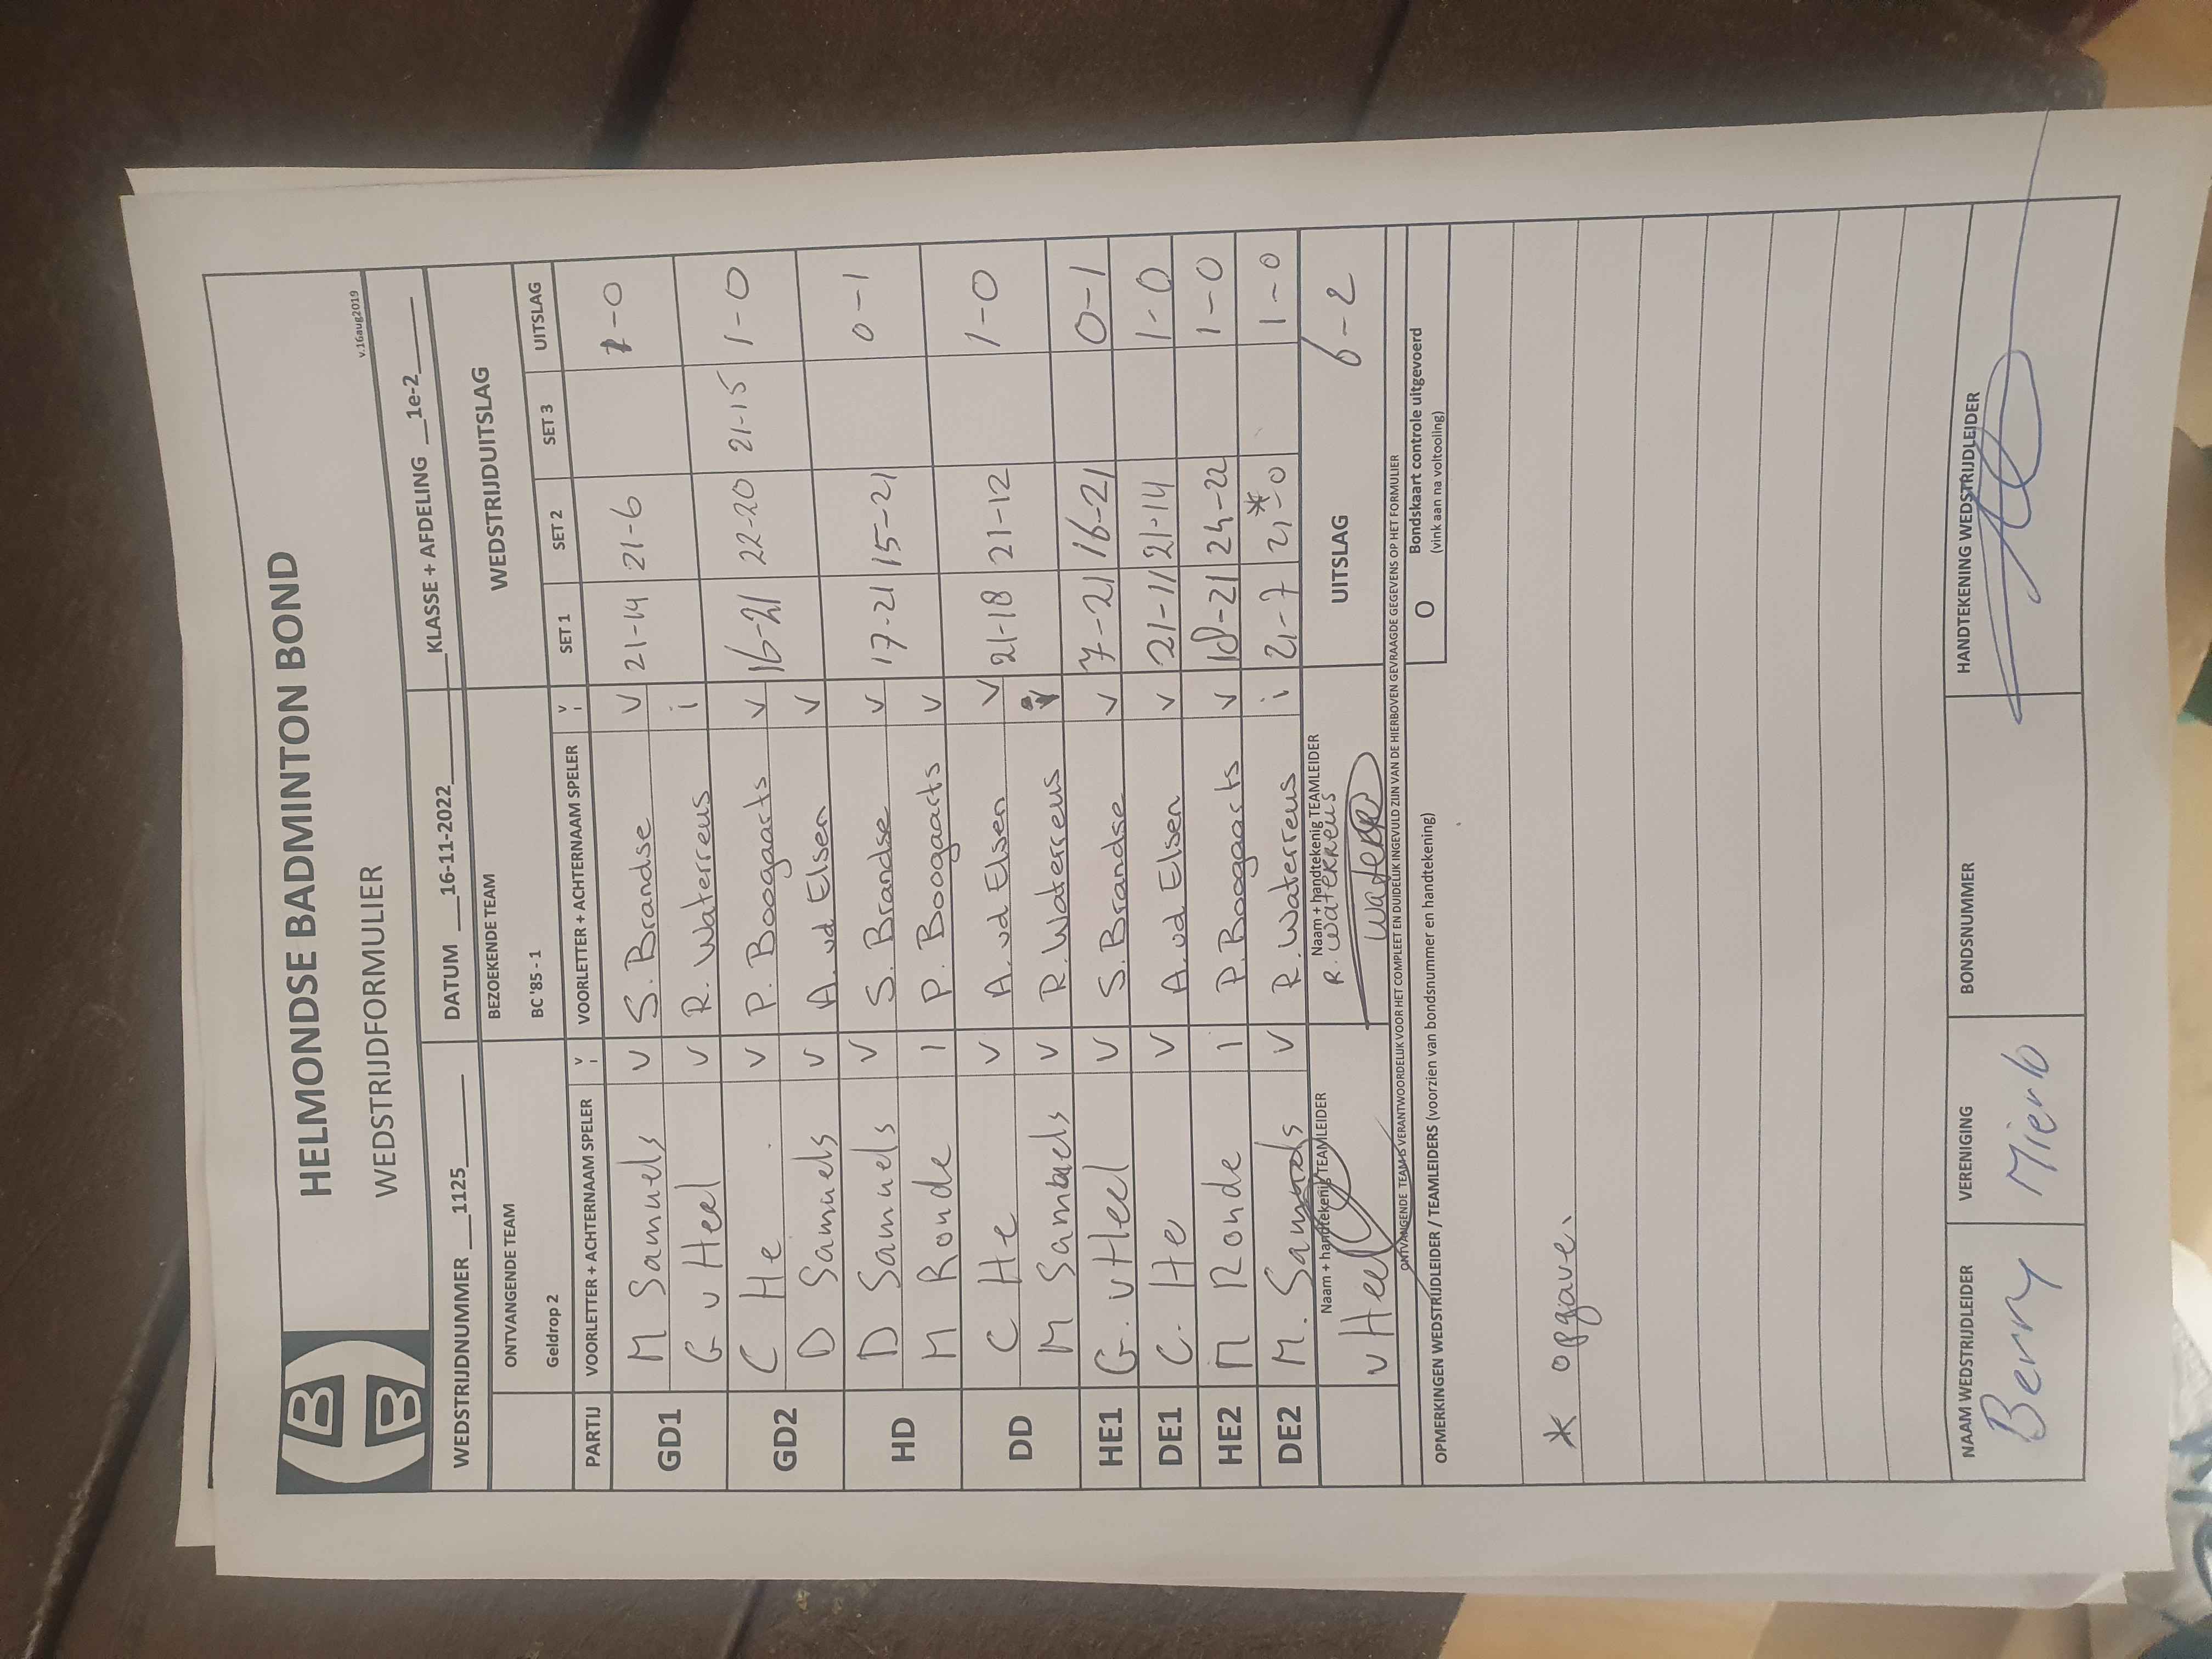 HELMONDSE BADMINTON BOND
WEDSTRIJDFORMULIER
v.16aug2019
WEDSTRIJDNUMMER ___1125______ DATUM ___16-11-2022______ KLASSE + AFDELING __1e-2______
ONTVANGENDE TEAM BEZOEKENDE TEAM WEDSTRIJDUITSLAG
Geldrop 2 BC '85 - 1
PARTIJ VOORLETTER + ACHTERNAAM SPELER V I VOORLETTER + ACHTERNAAM SPELER V I SET 1 SET 2 SET 3 UITSLAG
GD1 M Samuels V S. Brandse V 21-14 21-6 1-0
G v Heel V R. Waterreus i
GD2 C He V P. Boogaarts V 16-21 22-20 21-15 1-0
D Samuels V A. vd Elsen V
HD D Samuels V S. Brandse V 17-21 15-21 0-1
M Ronde I P. Boogaarts V
DD C He V A. vd Elsen V 21-18 21-12 1-0
M Samuels V R. Waterreus
HE1 G. v Heel V S. Brandse V 7-21 16-21 0-1
DE1 C. He V A. vd Elsen V 21-11 21-14 1-0
HE2 M Ronde I P. Boogaarts V 18-21 24-22 1-0
DE2 M. Samuels V R. Waterreus i 21-7 21-0 * 1-0
Naam + handtekenig TEAMLEIDER Naam + handtekenig TEAMLEIDER UITSLAG 6-2
v Heel R. WATERREUS
ONTVANGENDE TEAM IS VERANTWOORDELIJK VOOR HET COMPLEET EN DUIDELIJK INGEVULD ZIJN VAN DE HIERBOVEN GEVRAAGDE GEGEVENS OP HET FORMULIER
OPMERKINGEN WEDSTRIJDLEIDER / TEAMLEIDERS (voorzien van bondsnummer en handtekening) O Bondskaart controle uitgevoerd
(vink aan na voltooling)
* opgave.
NAAM WEDSTRIJDLEIDER VERENIGING BONDSNUMMER HANDTEKENING WEDSTRIJDLEIDER
Berry Mierlo